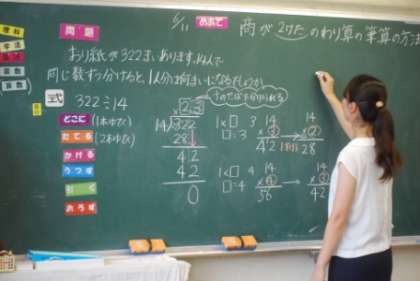 6/11 めあて 商が2けたのわり算の筆算の方法
問題
おり紙が322まいあります。14人で
同じ数ずつ分けると、1人分は何まいになるでしょうか。
式 322÷14
どこに (1本ゆび)
たてる (2本ゆび)
かける
うつす
引く
おろす
23
14 322
28
42
42
0
十のたば
1<□ 3 14
□=3 ×③ → 14 ×②
42 28
1<□ 4 14
□=4 ×④ → 14 ×③
56 42